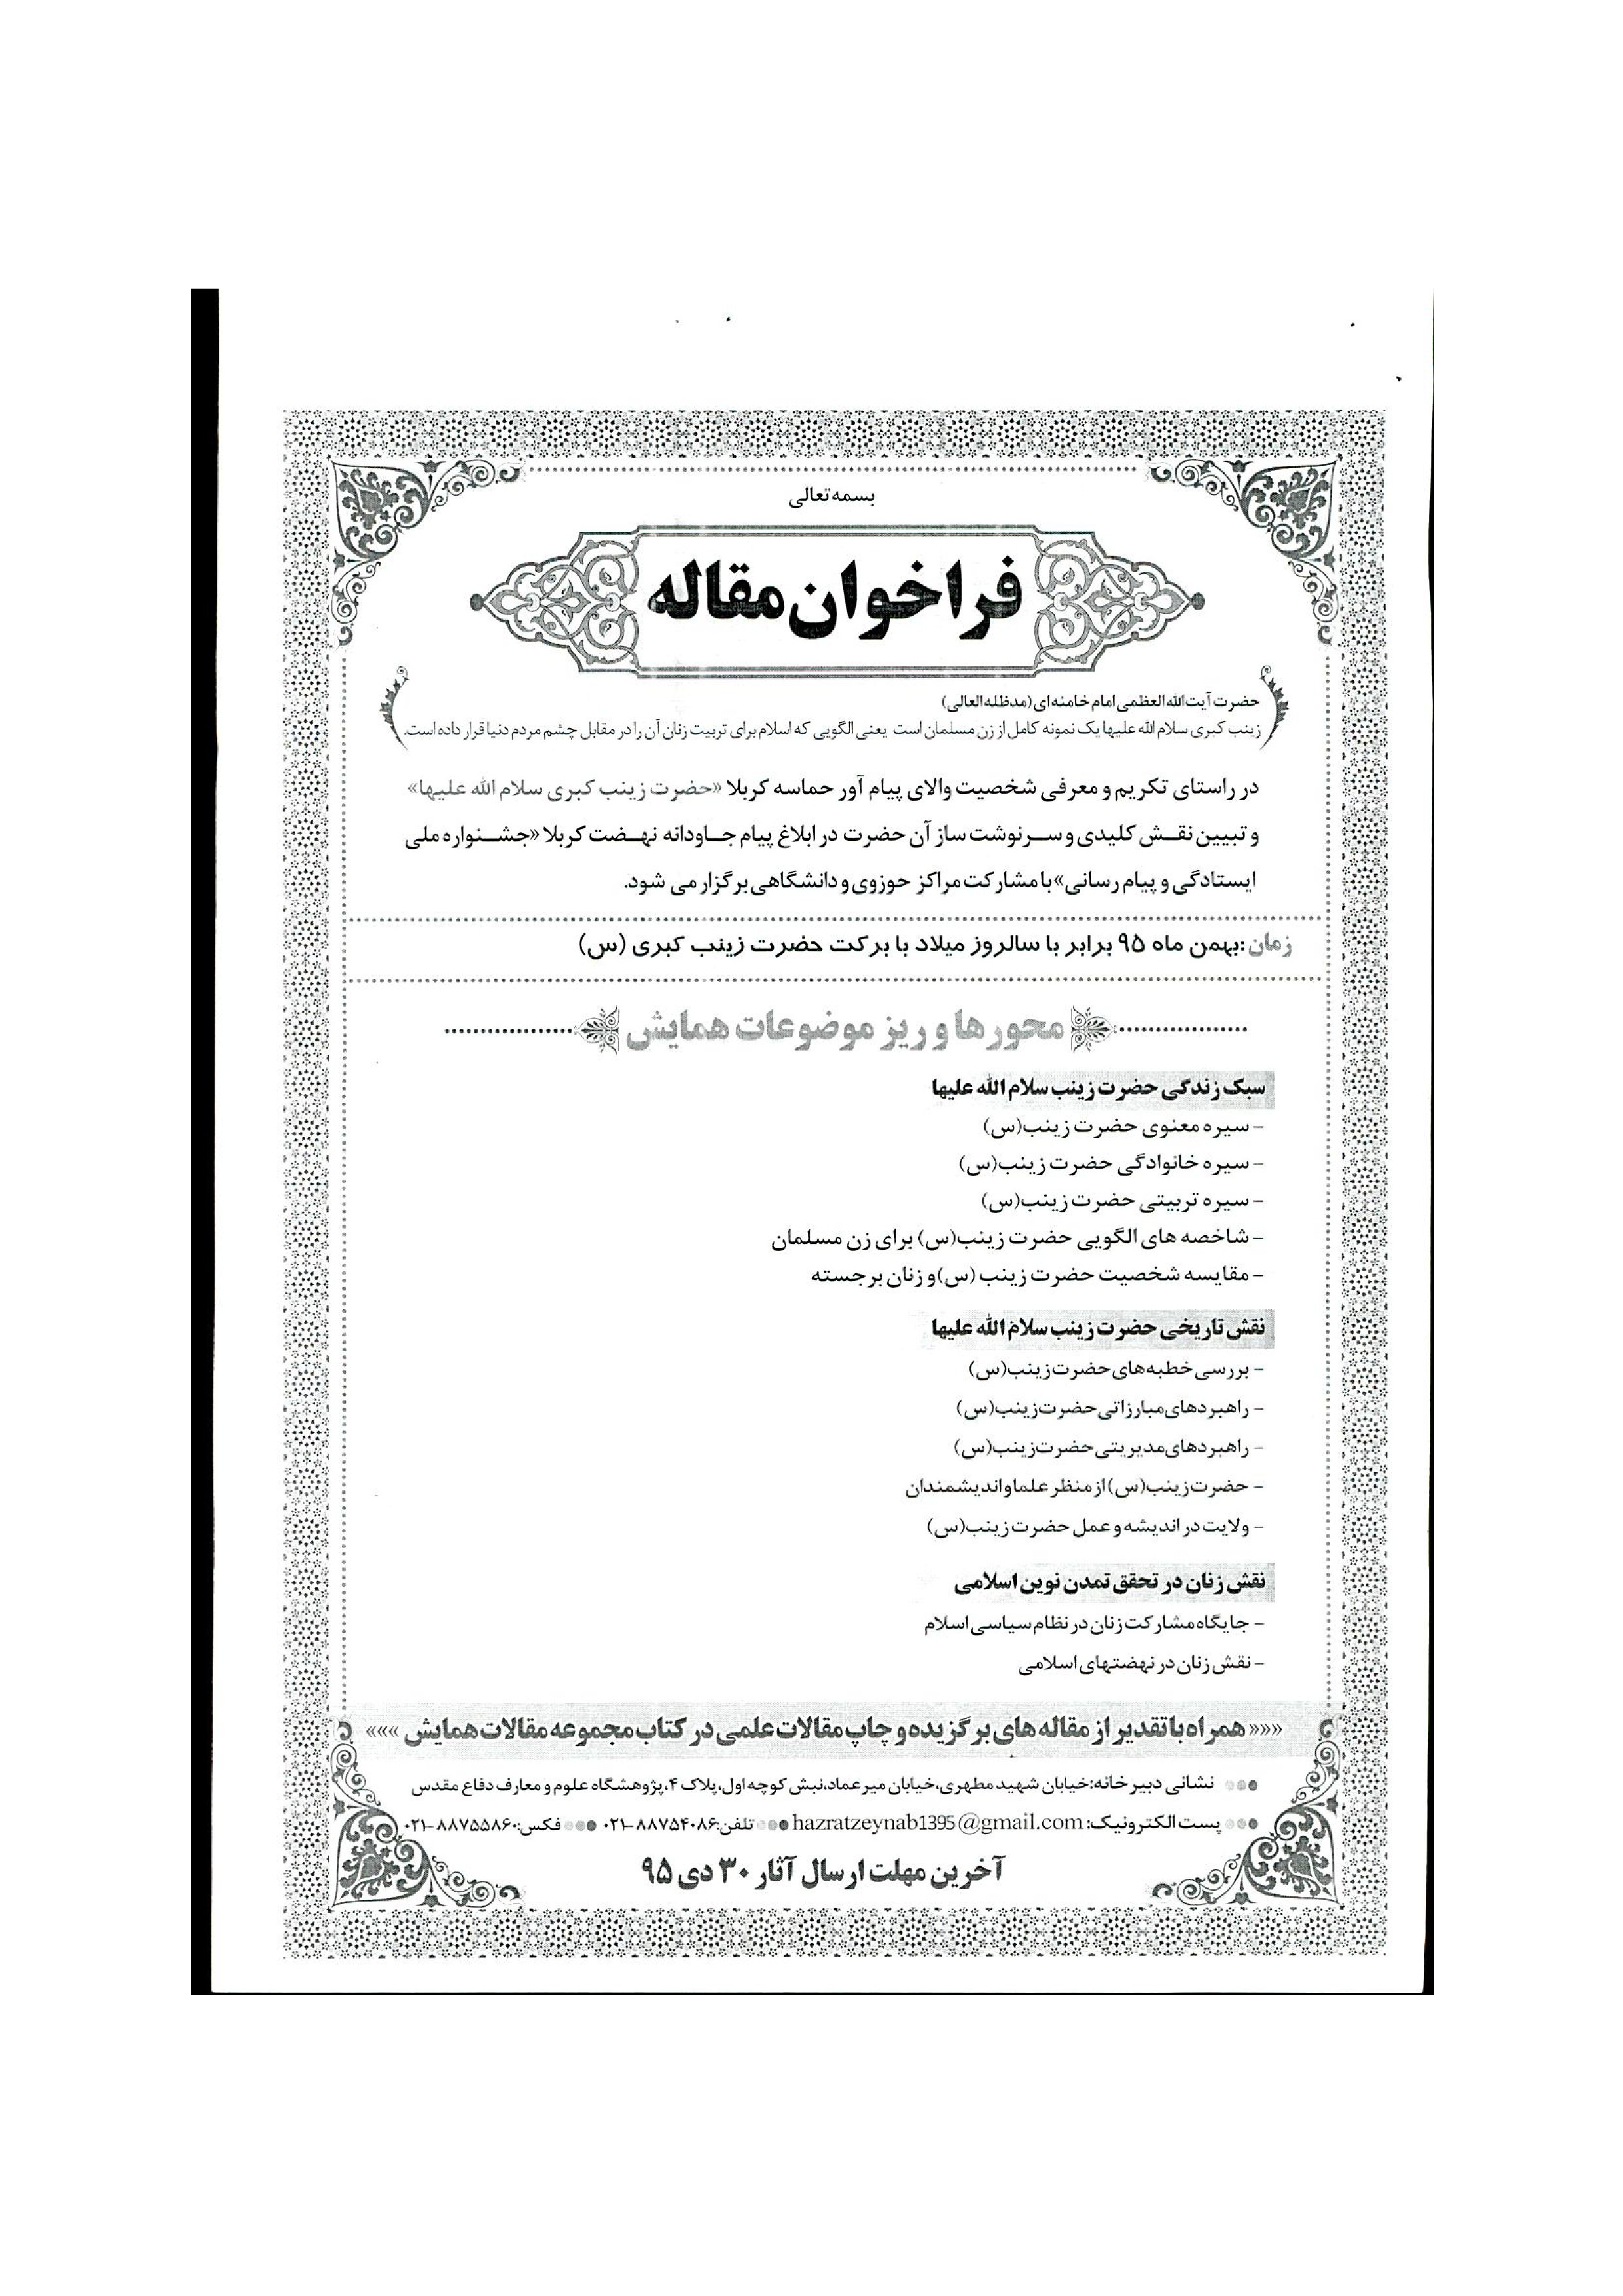 بسمه تعالی
فراخوان مقاله
حضرت آیت الله العظمی امام خامنه ای (مدظله العالی)
زینب کبری سلام الله علیها یک نمونه کامل از زن مسلمان است یعنی الگویی که اسلام برای تربیت زنان آن را در مقابل چشم مردم دنیا قرار داده است.
در راستای تکریم و معرفی شخصیت والای پیام آور حماسه کربلا «حضرت زینب کبری سلام الله علیها»
و تبیین نقش کلیدی و سرنوشت ساز آن حضرت در ابلاغ پیام جاودانه نهضت کربلا «جشنواره ملی
ایستادگی و پیام رسانی» با مشارکت مراکز حوزوی و دانشگاهی برگزار می شود.
زمان: بهمن ماه ۹۵ برابر با سالروز میلاد با برکت حضرت زینب کبری (س)
محورها و ریز موضوعات همایش
سبک زندگی حضرت زینب سلام الله علیها
- سیره معنوی حضرت زینب(س)
- سیره خانوادگی حضرت زینب(س)
- سیره تربیتی حضرت زینب(س)
- شاخصه های الگویی حضرت زینب(س) برای زن مسلمان
- مقایسه شخصیت حضرت زینب (س) و زنان برجسته
نقش تاریخی حضرت زینب سلام الله علیها
- بررسی خطبه‌های حضرت زینب(س)
- راهبردهای مبارزاتی حضرت زینب(س)
- راهبردهای مدیریتی حضرت زینب(س)
- حضرت زینب(س) از منظر علما و اندیشمندان
- ولایت در اندیشه و عمل حضرت زینب(س)
نقش زنان در تحقق تمدن نوین اسلامی
- جایگاه مشارکت زنان در نظام سیاسی اسلام
- نقش زنان در نهضتهای اسلامی
««« همراه با تقدیر از مقاله های برگزیده و چاپ مقالات علمی در کتاب مجموعه مقالات همایش »»»
نشانی دبیرخانه: خیابان شهید مطهری، خیابان میرعماد، نبش کوچه اول، پلاک ۴، پژوهشگاه علوم و معارف دفاع مقدس
پست الکترونیک: hazratzeynab1395@gmail.com تلفن: ۸۸۷۵۴۰۸۶-۰۲۱ فکس: ۸۸۷۵۵۸۶۰-۰۲۱
آخرین مهلت ارسال آثار ۳۰ دی ۹۵